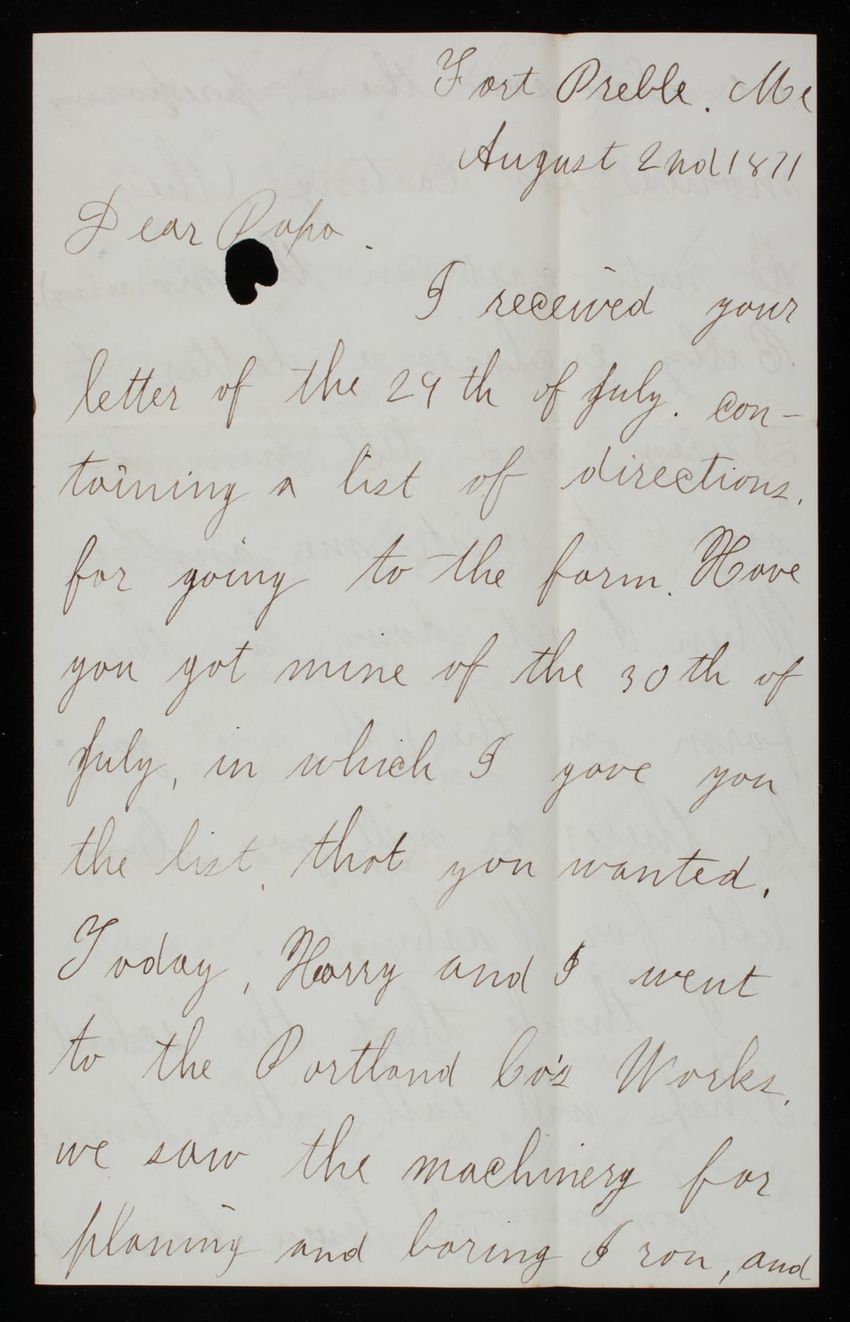 Fort Preble. Me
August 2nd 1871
Dear Papa.
I received your
letter of the 29th of July. con-
taining a list of directions.
for going to the farm. Have
you got mine of the 30th of
July, in which I gave you
the list, that you wanted.
Today, Harry and I went
to the Portland Co's Works.
we saw the machinery for
planing and boring Iron, and